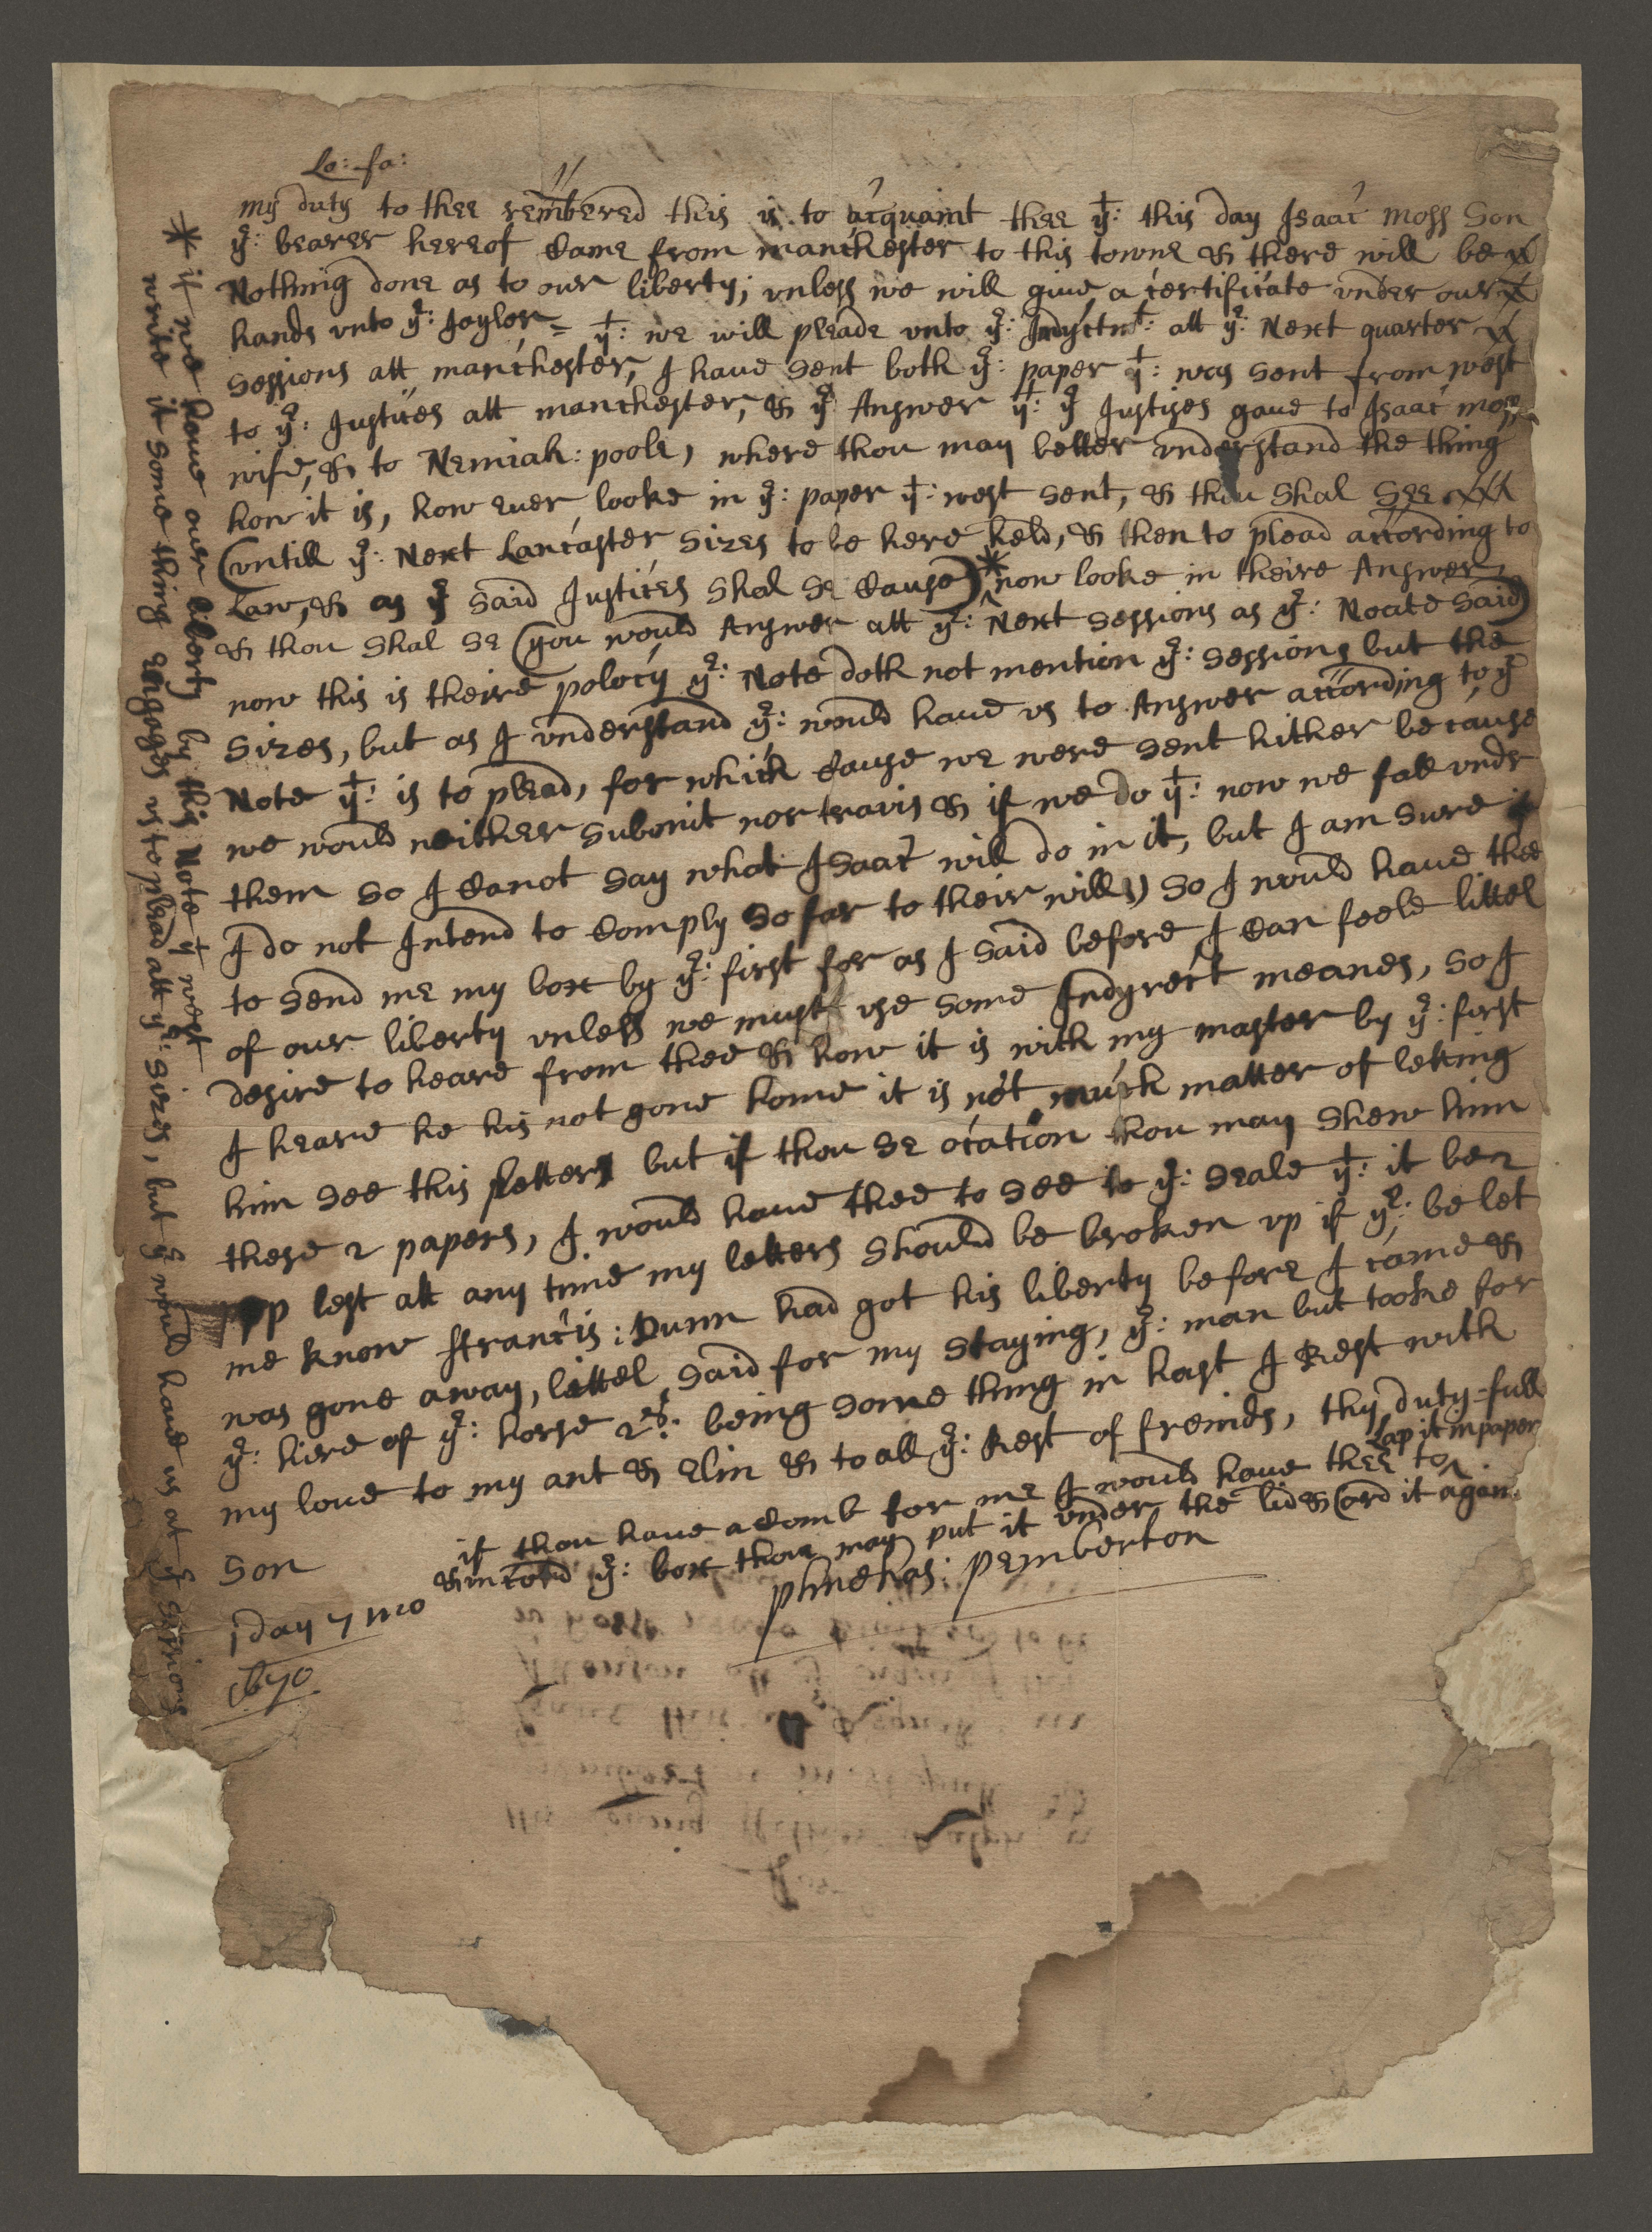 Lo: fa:
my duty to thee remembered this is to acquaint thee yt: this day Isaac Moss Son
ye: bearer hereof Came from manchester to this towne & there will be
Nothing done as to our liberty; vnless we will giue a certificate vnder our
hands vnto ye: Joylor = yt: we will pleade vnto ye: Indyctmt: att ye: Next quarter
sessions att manchester, I haue sent both ye: paper yt: was sent from west
to ye: Justices att manchester, & ye Answer yt: ye Justises gaue to Isaac mosse
wife, & to Nemiah: poole, where thou may better vnderstand the thing
how it is, how euer looke in ye: paper yt: west sent, & thou Shal See
(vntill ye: Next Lancaster Sizes to be here held, & then to plead according to
Law, & as ye said Justices Shal Se Cause) * now looke in theire Answer
& thou Shal Se (you would Answer att ye: Next Sessions as ye: Noate Said)
now this is theire polocy ye: Note doth not mention ye: Sessions but the
Sizes, but as I vnderstand ye: would haue vs to Answer according to ye
Note yt: is to plead, for which Cause we were sent hither because
we would neither submit nor travis & if we do yt: now we fall vnder
them so I Canot Say what Isaac will do in it, but I am sure
I do not Intend to Comply so far to their wills) so I would haue thee
to send me my box by ye: first for as I said before I Can feele littel
of our liberty vnless we must vse some Indyrect meanes, so I
desire to heare from thee & how it is with my master by ye: first
I heare he his not gone home it is not much matter of letting
him see this letter but if thou se ocation thou may shew him
these 2 papers, I would haue thee to see to ye: seale yt: it be n
vp lest att any time my letters should be broken vp if ye: be let
me know ffrancis: Dunn had got his liberty before I came &
was gone away, littel said for my staying, ye: man but tooke for
ye: hire of ye: horse 2s: being some thing in hast I Rest with
my loue to my ant & Elin & to all ye: Rest of freinds, thy duty-full
Son
if thou haue a Comb for me I would haue thee to lap it in paper
& in cord ye: box thou may put it vnder the lid & Cord it again
phinehas: pemberton
1 day 7 mo
1670
* if we haue our liberty by this Note yt west
write it some thing engages vs to plead att ye: sizes, but ye would haue vs at ye sessions